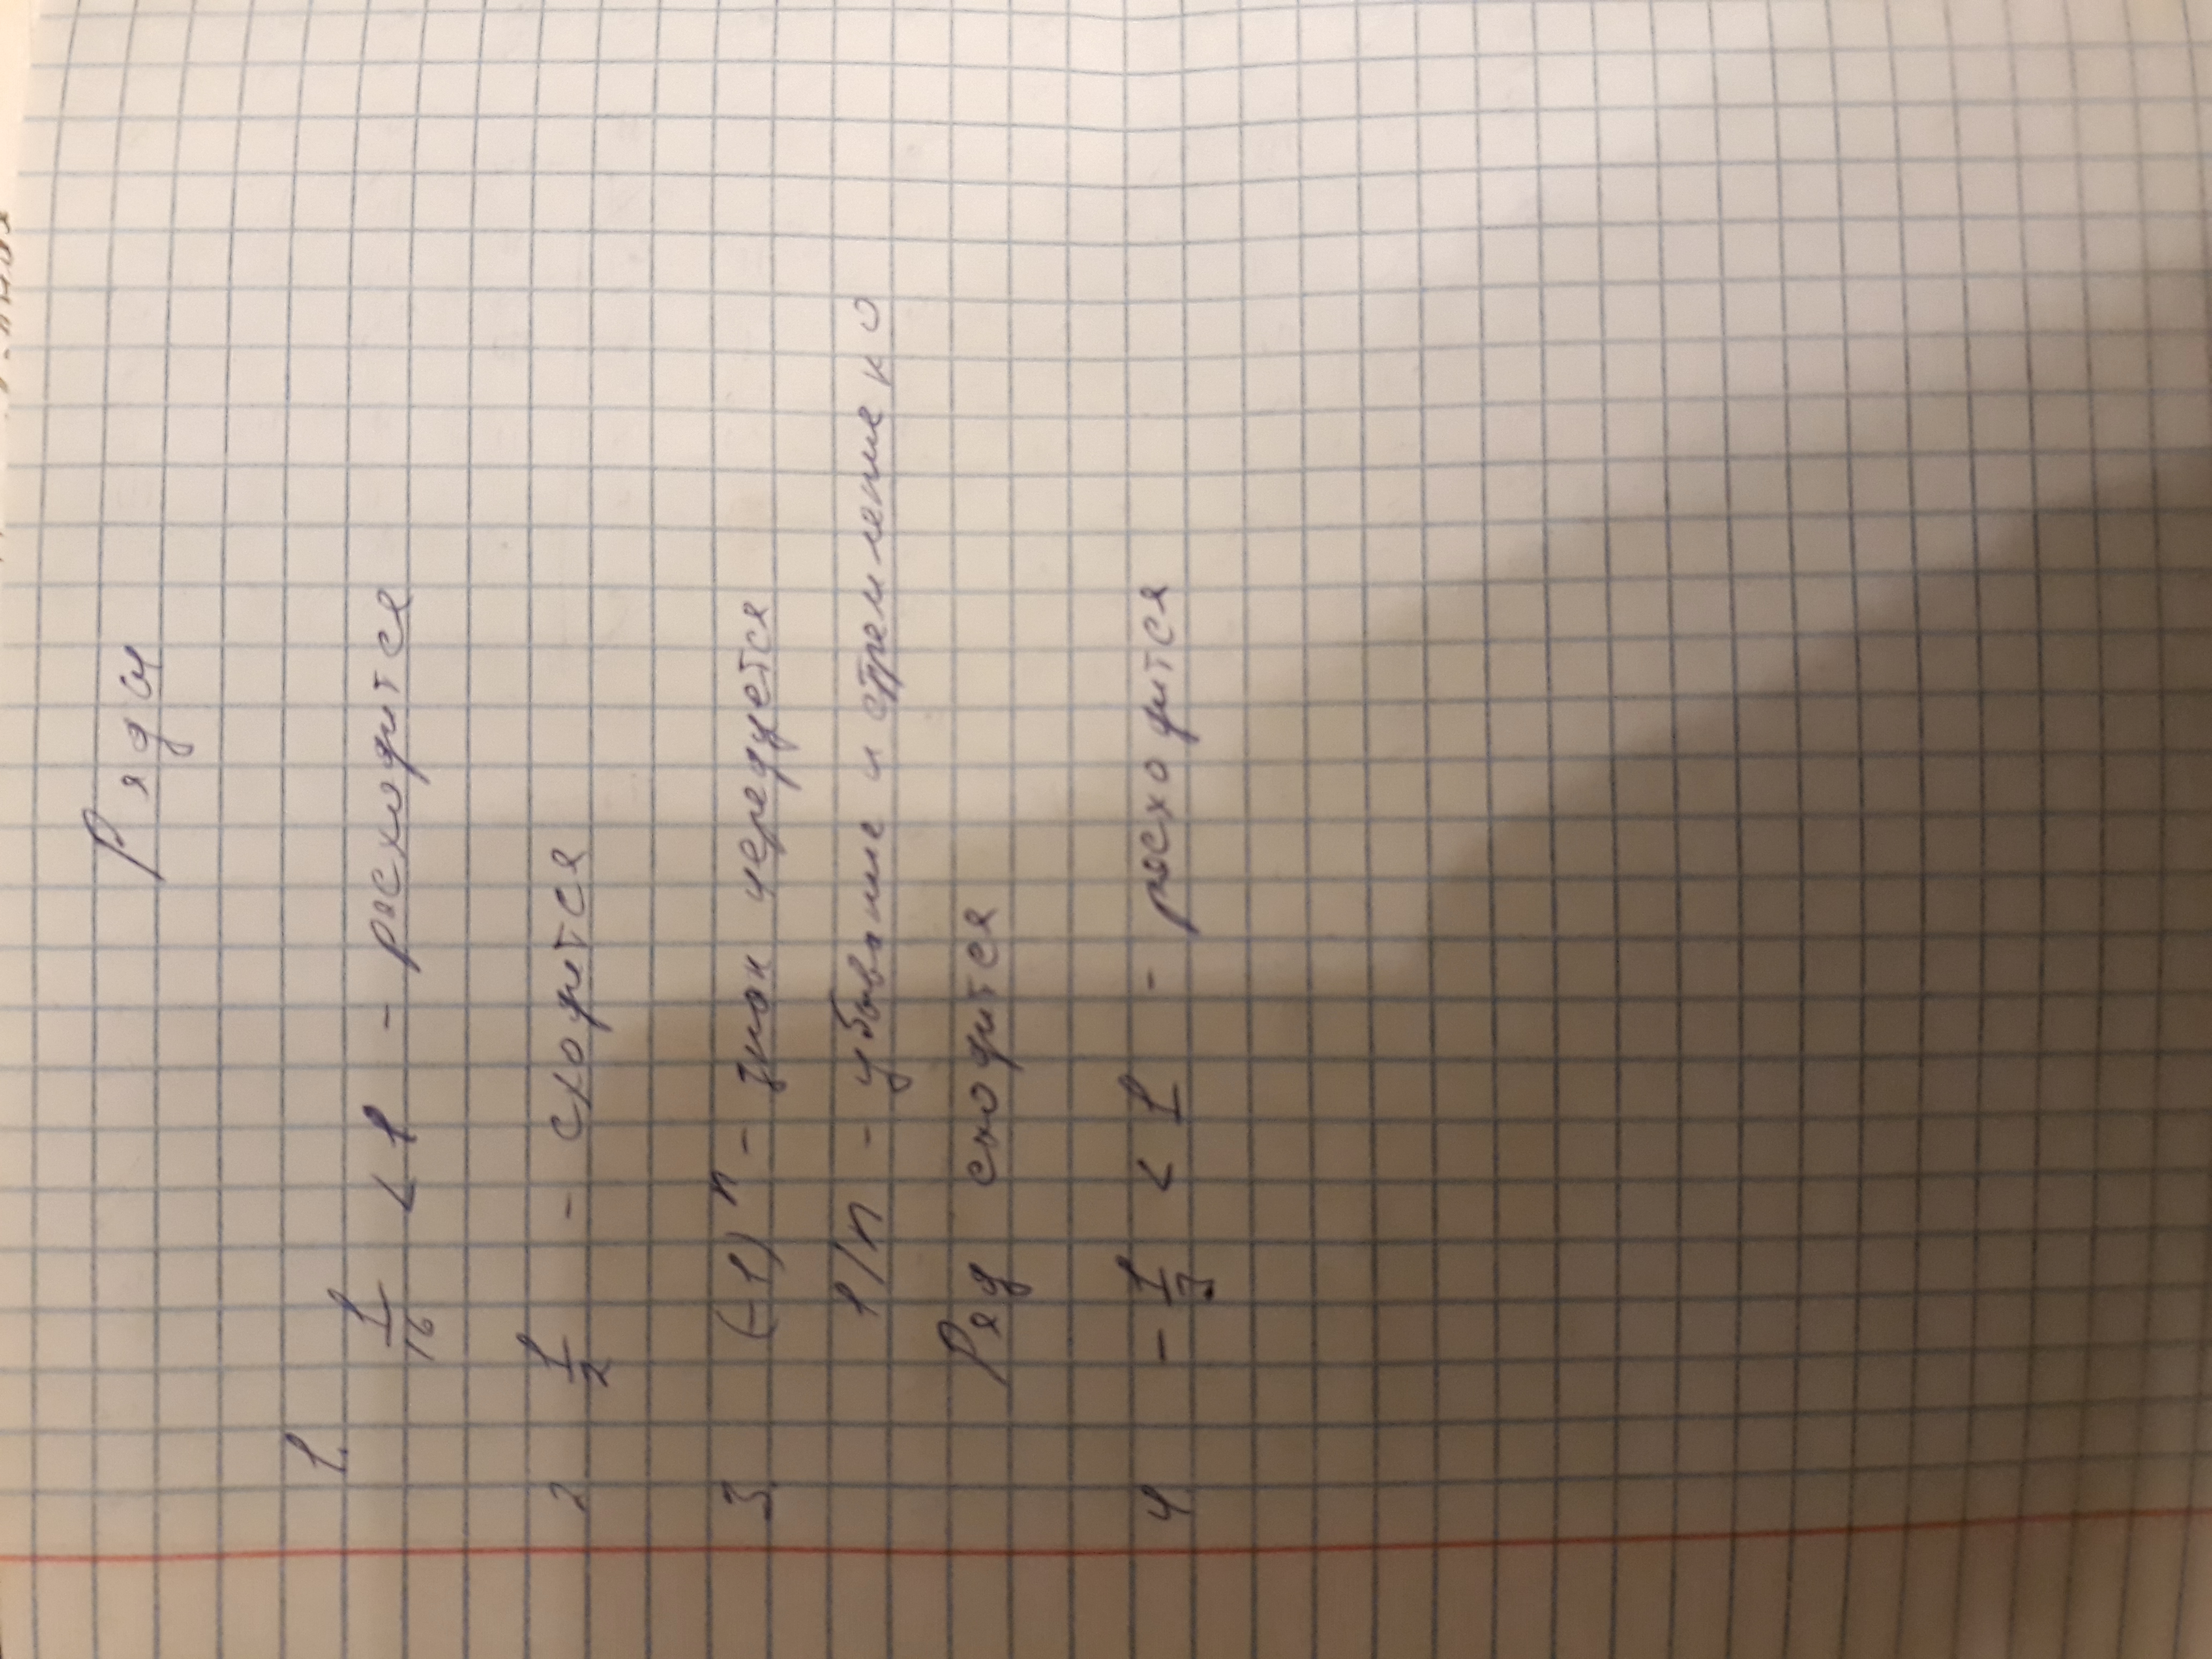 Ряды
1.
1/16 < 1 - расходится
2. 1/2 - сходится
3. (-1)^n - знак чередуется
1/n - убывание и стремление к 0
Ряд сходится
4. - 1/3 < 1 - расходится